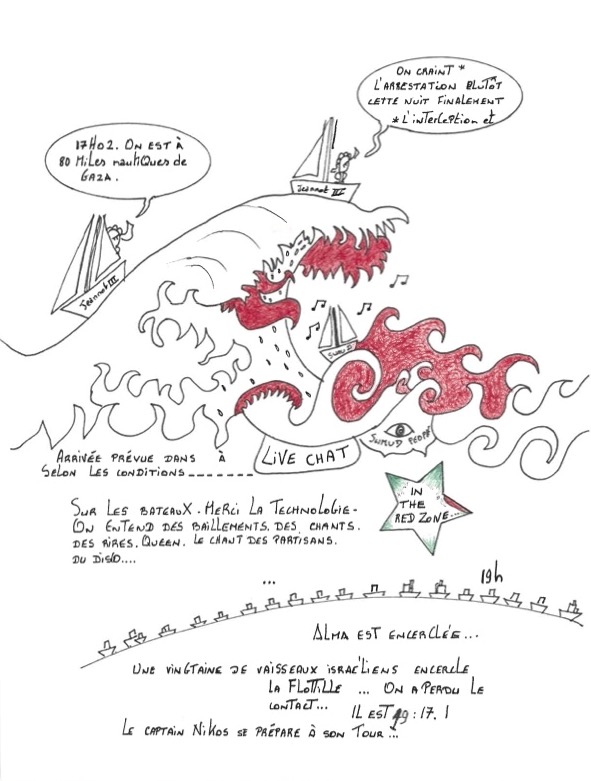 ON CRAINT *
L'ARRESTATION PLUTÔT
CETTE NUIT FINALEMENT
* L'INTERCEPTION et
17H02. ON EST À
80 MILES NAUTIQUES DE
GAZA.
Jeannot III
Jeannot III
LIVE CHAT
SUMUD PEOPLE
ARRIVÉE PRÉVUE DANS À
SELON LES CONDITIONS_______
IN
THE
RED ZONE...
SUR LES BATEAUX. MERCI LA TECHNOLOGIE-
ON ENTEND DES BAILLEMENTS. DES CHANTS.
DES RIRES. QUEEN. LE CHANT DES PARTISANS.
DU DISCO....
...
19h
ALMA EST ENCERCLÉE...
UNE VINGTAINE DE VAISSEAUX ISRAÉLIENS ENCERCLE
LA FLOTTILLE ... ON A PERDU LE
CONTACT...
IL EST 19:17. !
LE CAPTAIN NIKOS SE PRÉPARE À SON TOUR...